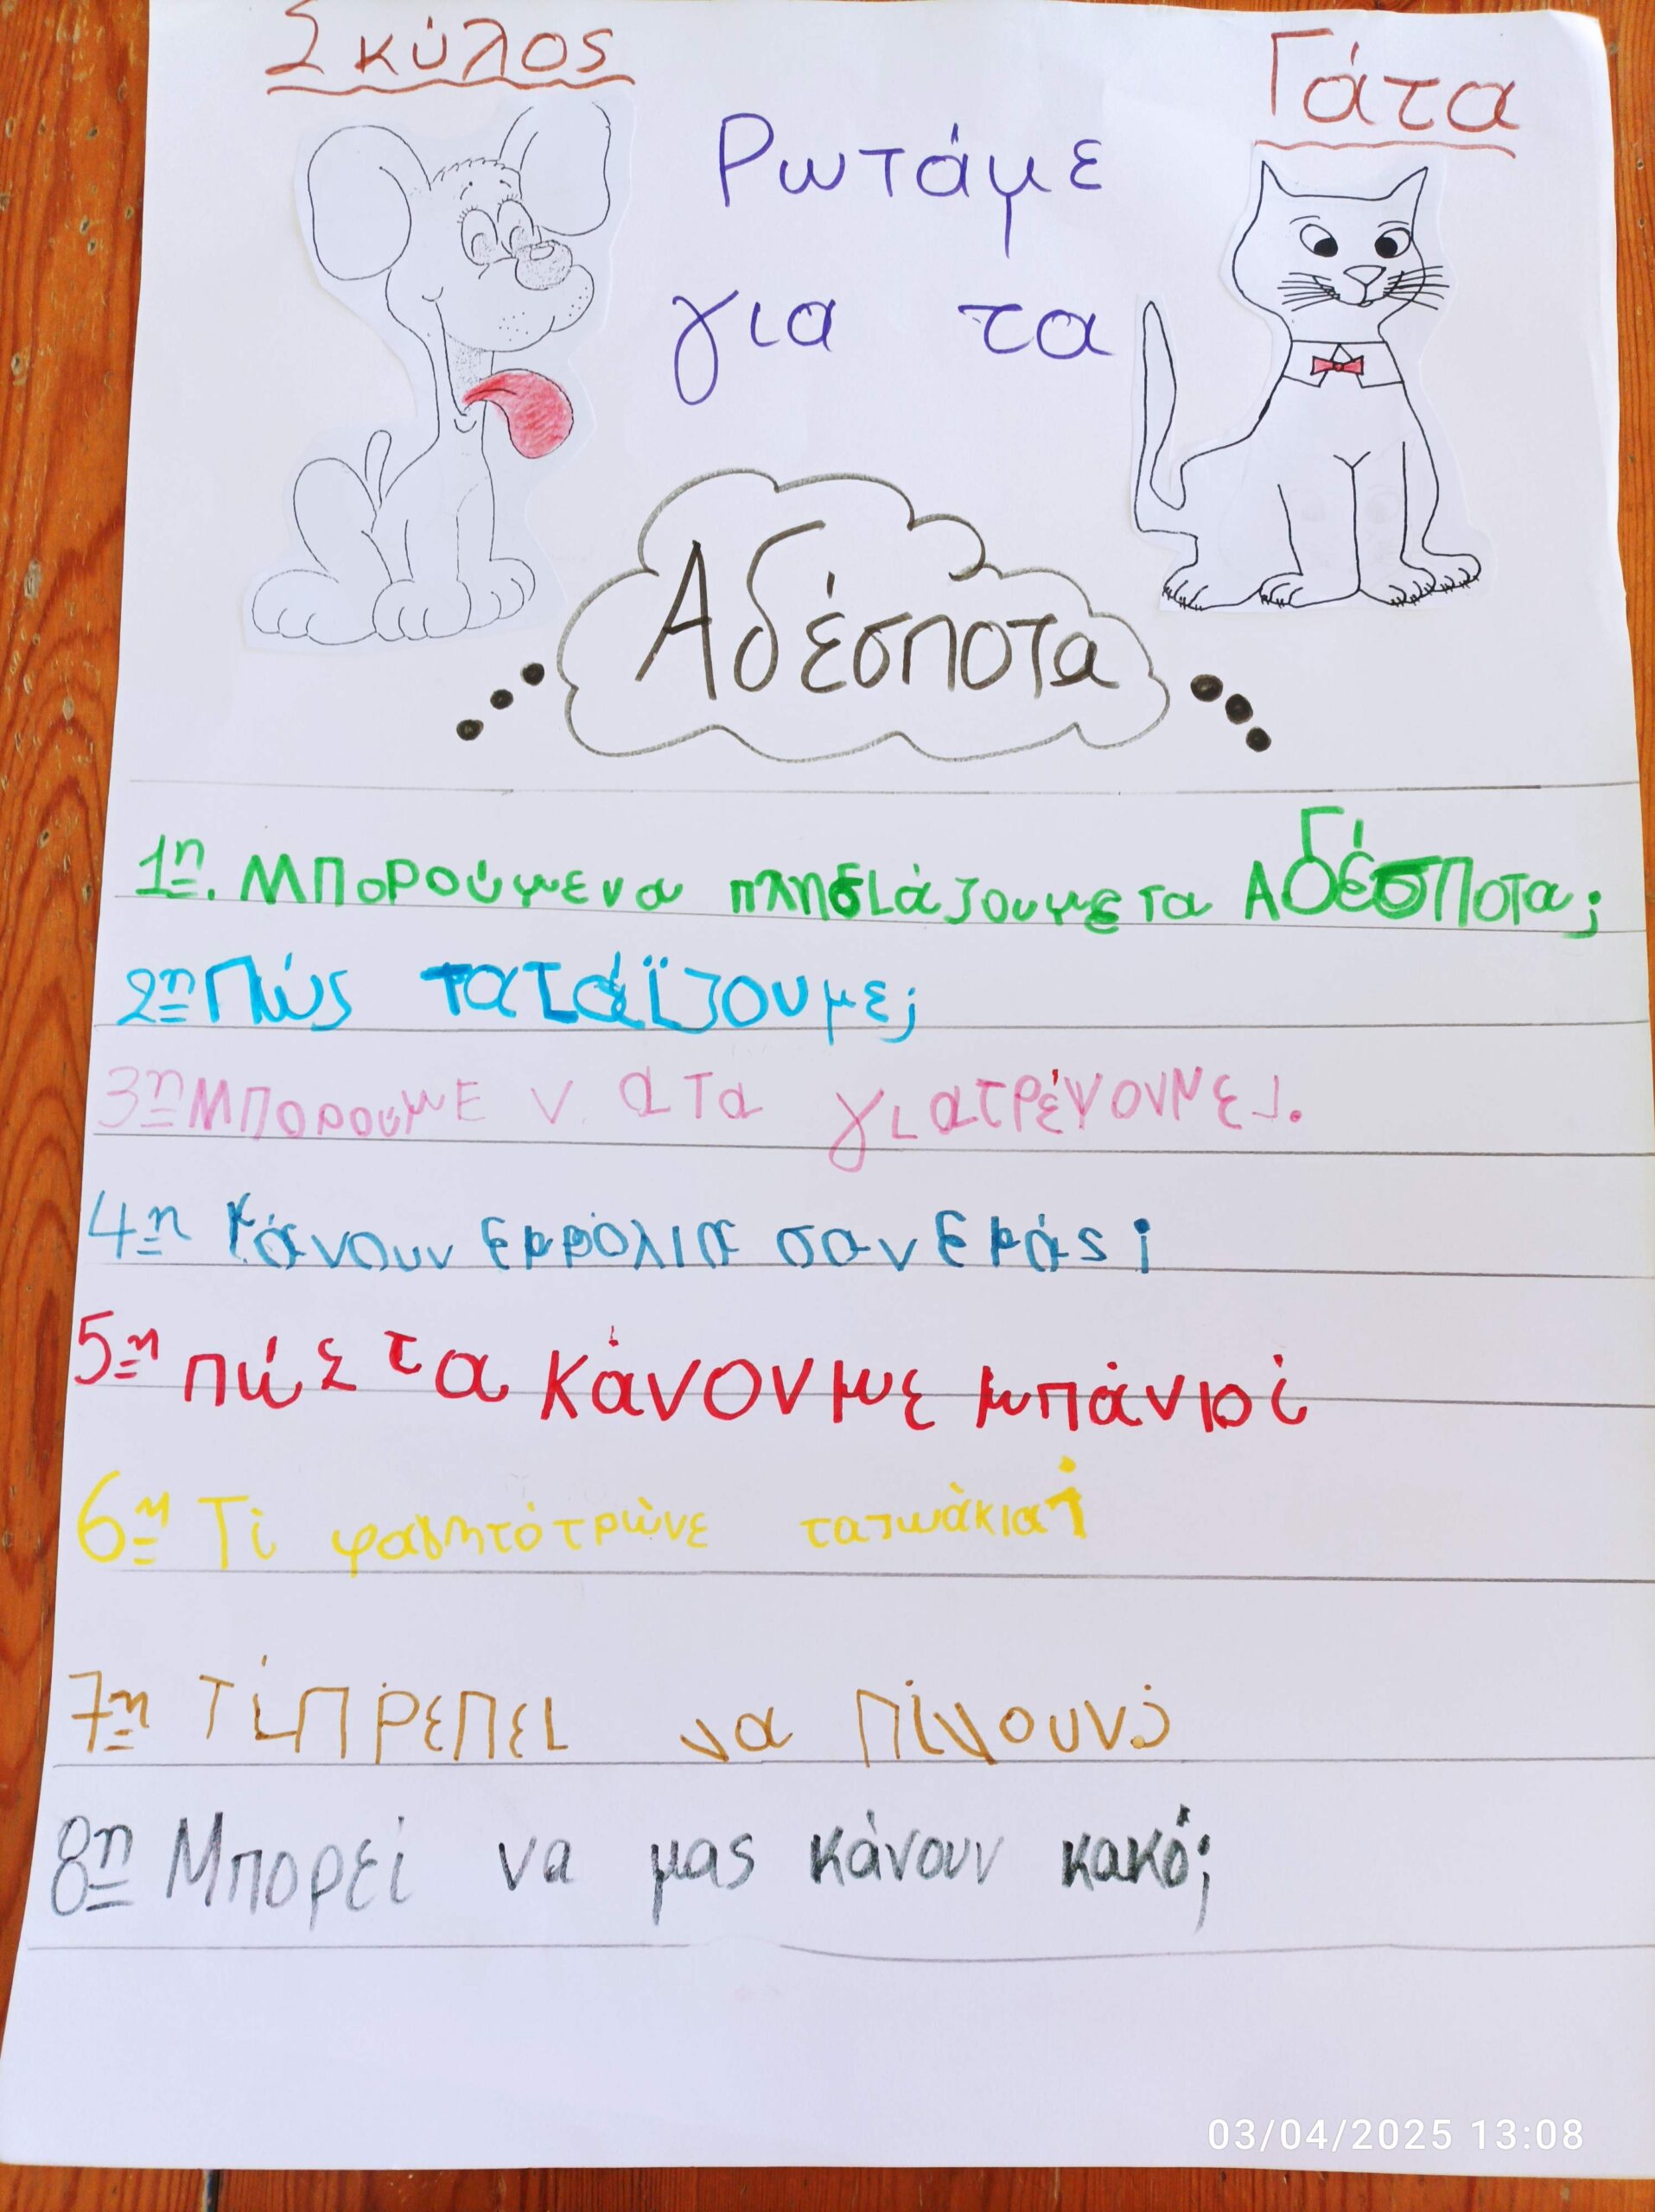 Σκύλος
Γάτα
Ρωτάμε
για τα
Αδέσποτα
1η. Μπορούμε να πλησιάζουμε τα Αδέσποτα;
2η Πώς τα ταΐζουμε;
3η Μπορουμε ν ατα γιατρέψουμε;
4η Κάνουν εμβόλια σαν εμάς;
5η πώς τα κάνουμε μπάνιο;
6η Τί φαγητό τρώνε τα ζωάκια;
7η Τί πρέπει να πίνουν;
8η Μπορεί να μας κάνουν κακό;
03/04/2025 13:08